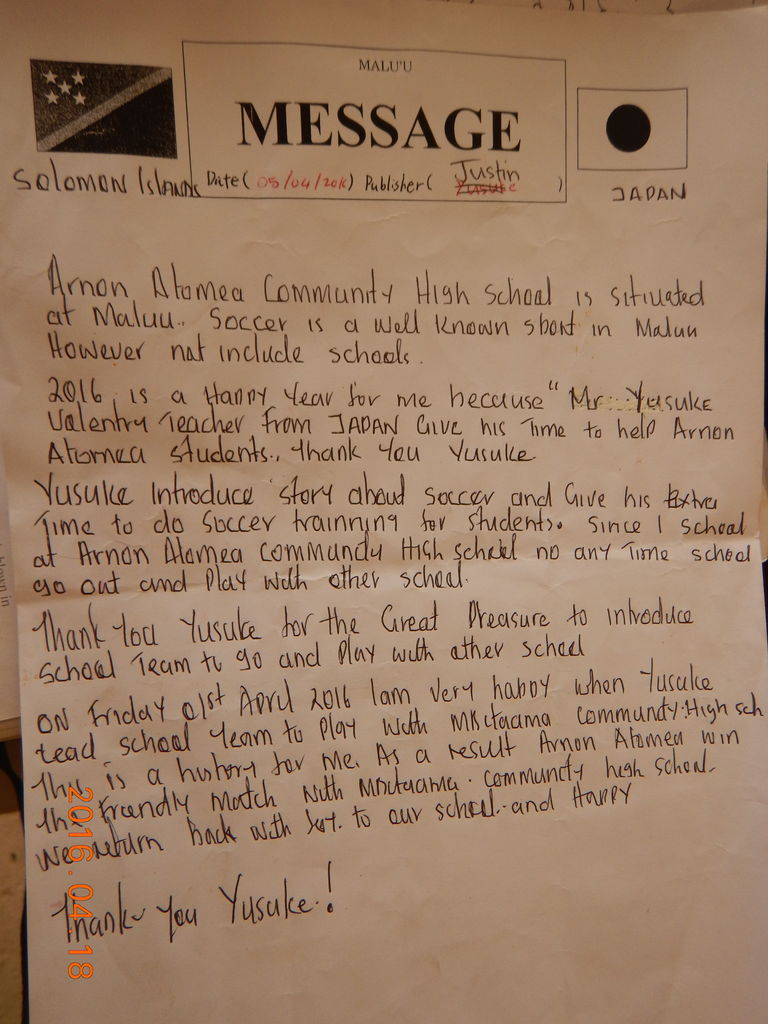 MALU'U
MESSAGE
SOLOMON ISLANDS
Date( 05/04/2016) Publisher( Justin )
JAPAN
Arnon Atomea Community High School is situated
at Maluu.. Soccer is a well known sport in Maluu
However not include schools.
2016 is a Happy Year for me because "Mr Yusuke
Valentry Teacher From JAPAN Give his Time to help Arnon
Atomea students., Thank You Yusuke
Yusuke Introduce story about soccer and Give his Extra
Time to do Soccer trainrying for students. Since I school
at Arnon Atomea Commundy High school no any Time school
go out and Play with other school.
Thank You Yusuke for the Great Preasure to introduce
School Team to go and Play with other school
ON Friday 01st April 2016 Iam very happy when Yusuke
lead school Team to Play with community High sch
This is a history for me. As a result Arnon Atomea win
the friendly match with community high school.
We return back with Joy. to our school. and Happy
Thank you Yusuke.!
2016.04.18